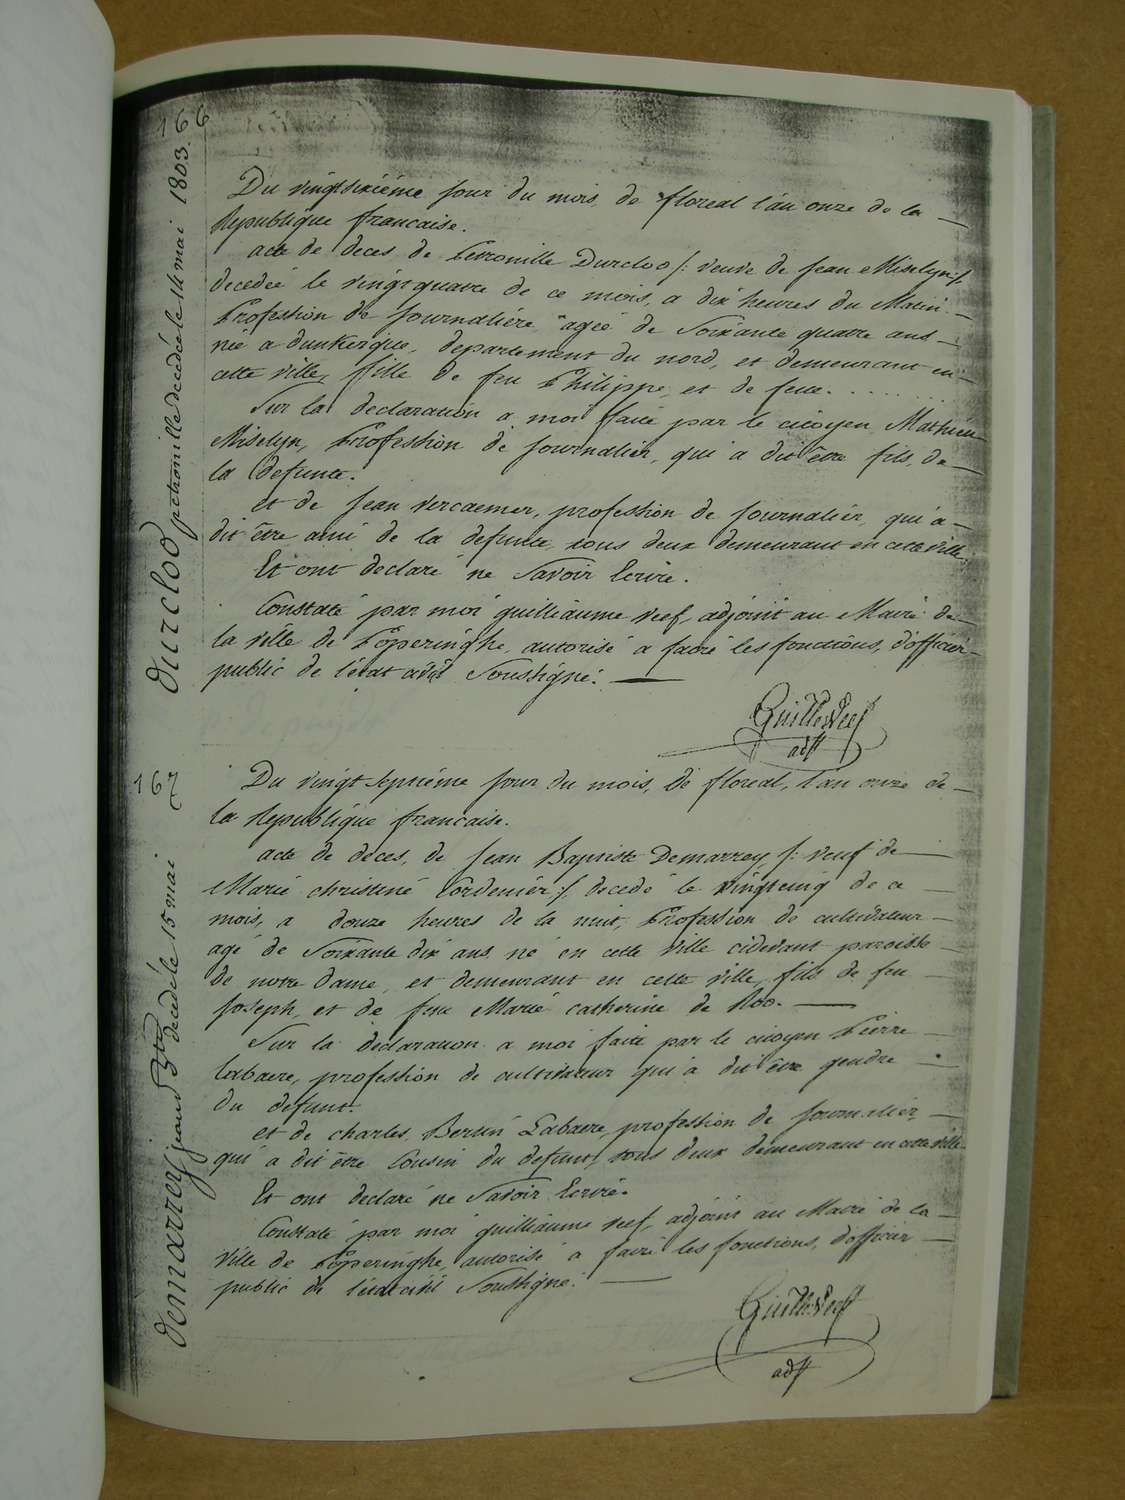 166
durcloo petronille decedée le 14 mai 1803.
Du vingtsixiéme jour du mois de floreal l'an onze de la
Republique francaise.
acte de deces de Petronille Durcloo /: veuve de Jean Miselyn :/
decedée le vingt quatre de ce mois, a dix heures du Matin
Profession de journaliére, agée de Soixante quatre ans
née a dunkerque, departement du nord, et demeurant en
cette ville, fille de feu Philippe, et de feue . . . . . . . .
Sur la declaration a moi faite par le citoyen Mathieu
Miselyn, Profession de journalier, qui a dit être fils, de
la defunte.
et de Jean vercaemer, profession de journalier, qui a
dit être ami de la defunte, tous deux demeurant en cette ville,
Et ont declaré ne Savoir Ecrire.
Constaté par moi guilliaume veef, adjoint au Mairé de
la ville de Poperinghe, autorisé a faire les fonctions, d'officier
public de l'etat civil Soussigné:
Guille Veef
adjt
167
demarrey jean Bte decedé le 15 mai
Du vingt septiéme jour du mois, de floreal, l'an onze de
la Republique francaise.
acte de deces, de Jean Baptiste Demarrey, /: veuf de
Marie christine Cordenier :/ decedé le vingtcinq de ce
mois, a douze heures de la nuit, Profession de cultivateur
agé de Soixante dix ans, né en cette ville cidevant paroisse
de notre Dame, et demeurant en cette ville, fils de feu
Joseph, et de feue Marie catherine de Roo.
Sur la declaration a moi faite par le citoyen Pierre
Labaere, profession de cultivateur qui a dit être gendre
du defunt.
et de charles Bertin Labaere, profession de journalier,
qui a dit être Cousin du defunt, tous deux demeurant en cette ville
Et ont declaré ne Savoir Ecrire.
Constaté par moi guilliaume veef, adjoint au Mairé de la
ville de Poperinghe, autorisé a faire les fonctions, d'officier
public de l'etat civil Soussigné:
Guille Veef
adjt